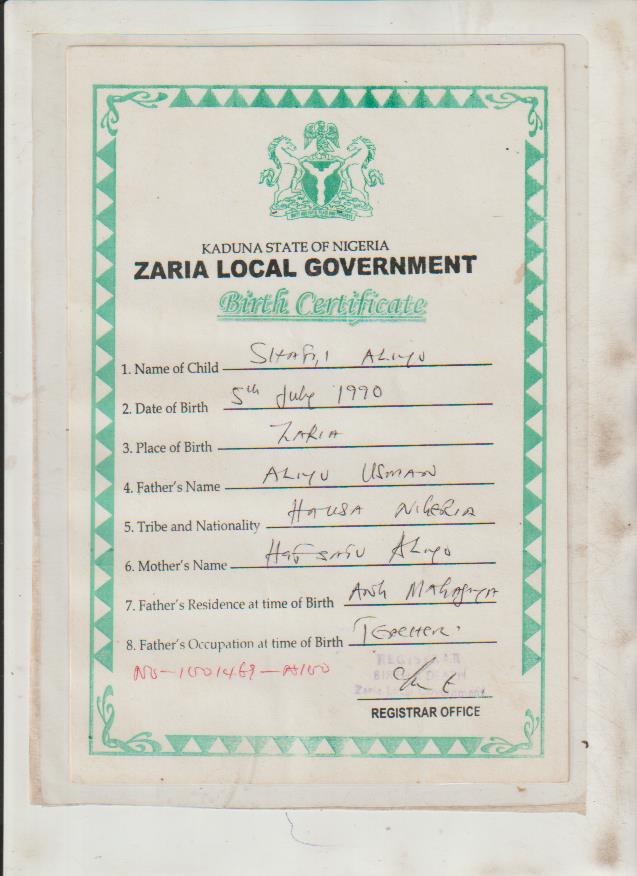 KADUNA STATE OF NIGERIA
ZARIA LOCAL GOVERNMENT
Birth Certificate
1. Name of Child SHAFI,I ALIYU
2. Date of Birth 5th July 1990
3. Place of Birth ZARIA
4. Father's Name ALIYU USMAN
5. Tribe and Nationality HAUSA NIGERIA
6. Mother's Name ALIYU
7. Father's Residence at time of Birth
8. Father's Occupation at time of Birth TEACHER.
REGISTRAR
REGISTRAR OFFICE